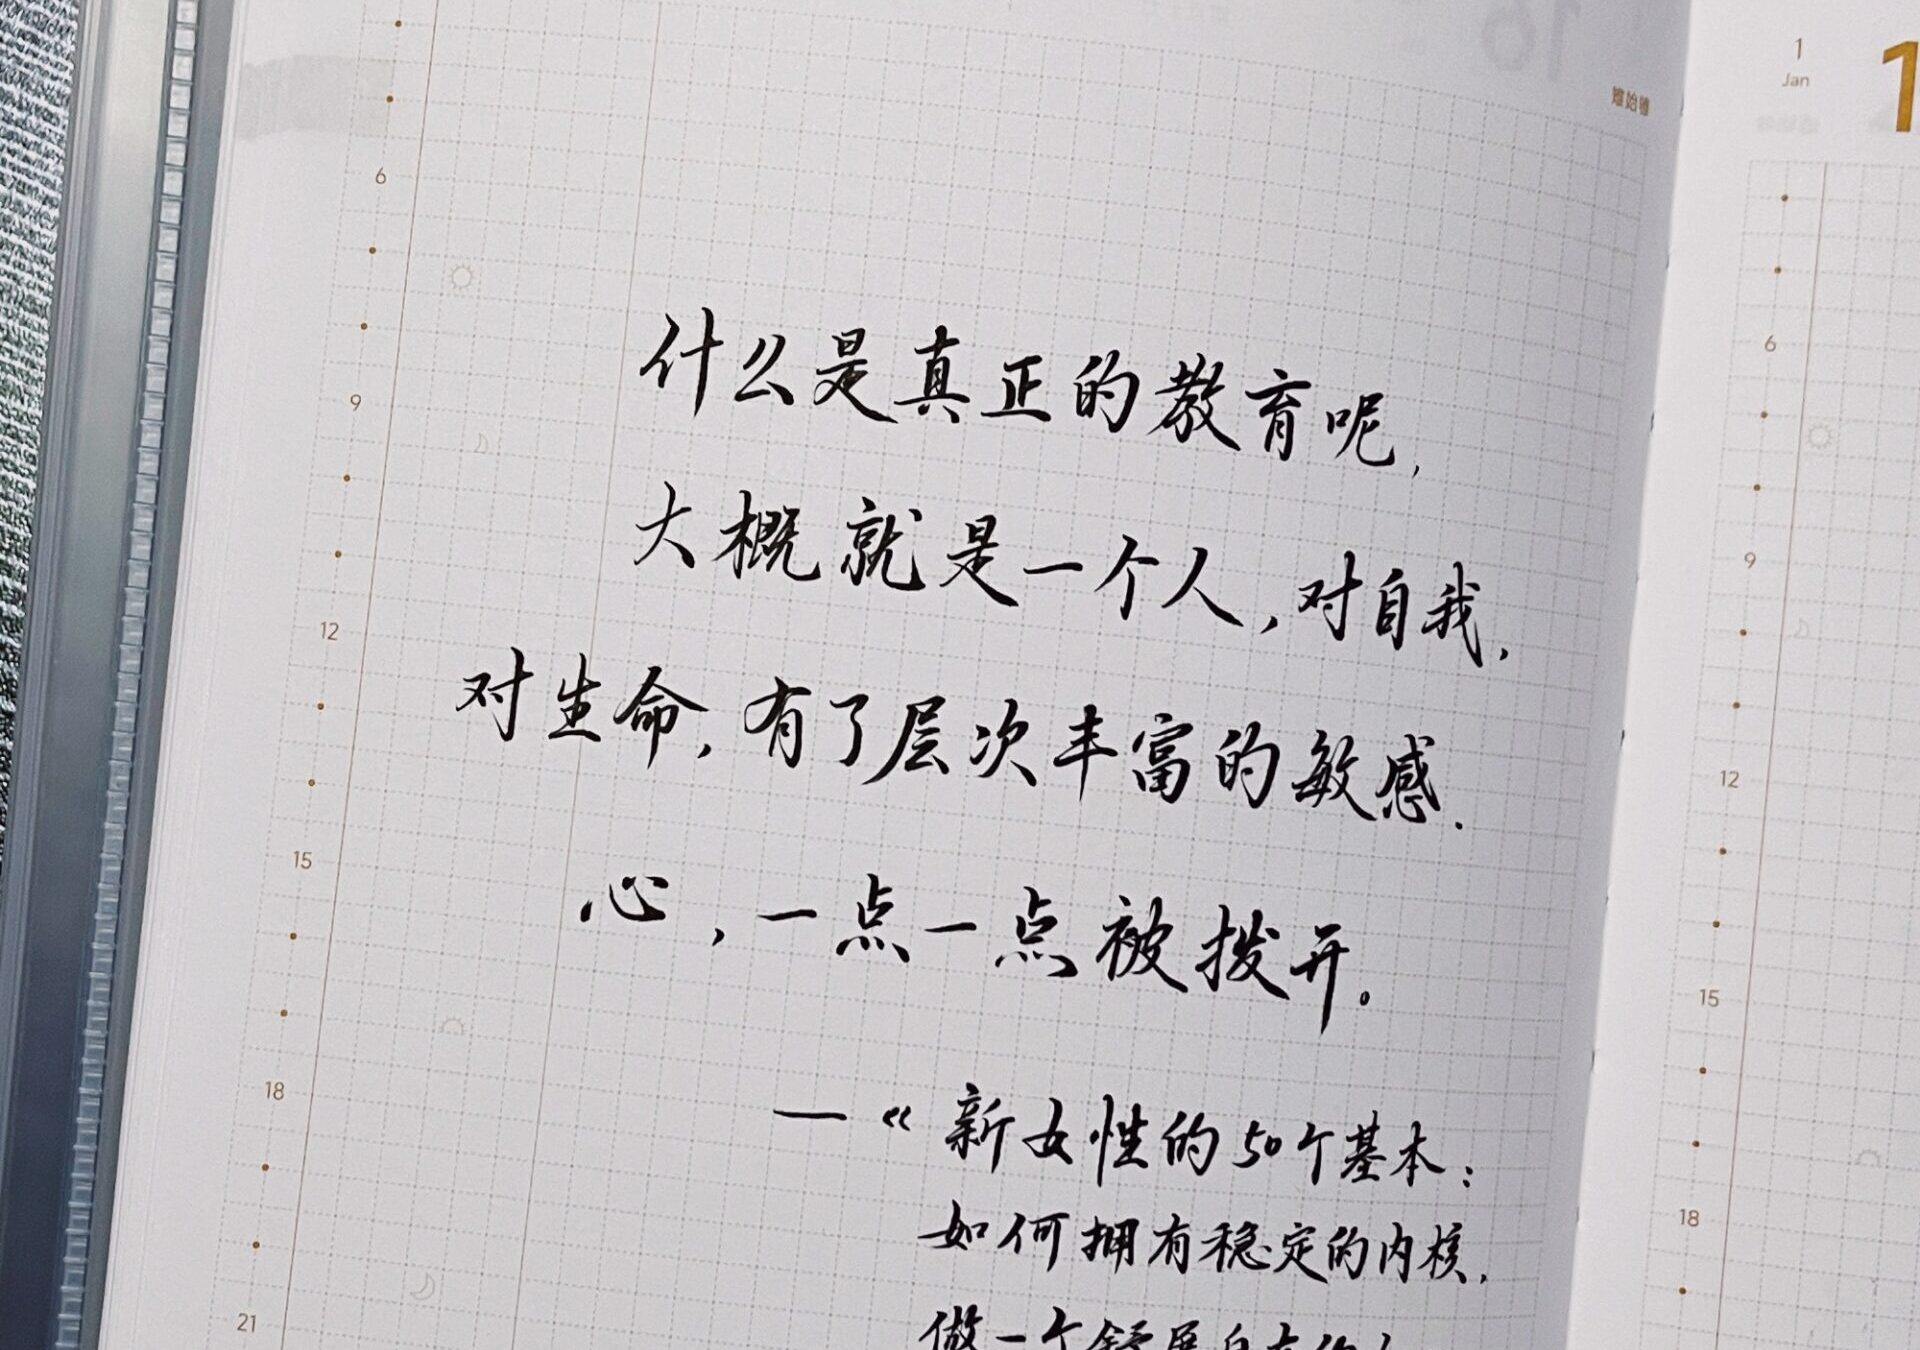 什么是真正的教育呢,
大概就是一个人,对自我,
对生命,有了层次丰富的敏感.
心,一点一点被拨开。
—《新女性的50个基本:
如何拥有稳定的内核,
做一个舒展自在的人
6
9
12
15
18
21
雉始雊
1
Jan
1
6
9
12
15
18